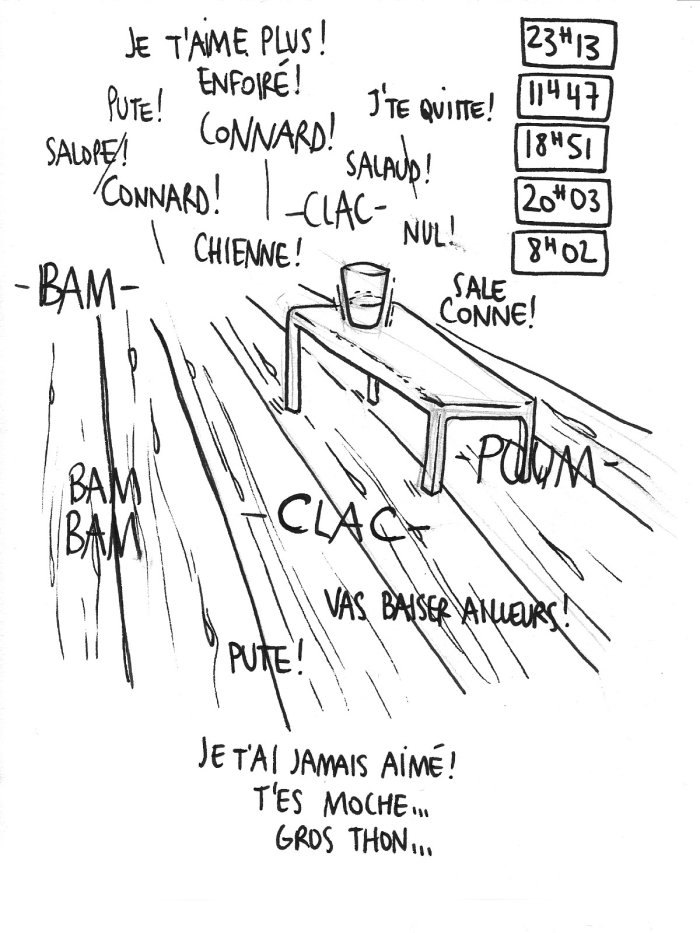 JE T'AIME PLUS!
ENFOIRÉ!
PUTE!
CONNARD!
J'TE QUITTE!
SALOPE!
SALAUD!
CONNARD!
-CLAC-
NUL!
CHIENNE!
23H13
11H47
18H51
20H03
8H02
-BAM-
SALE
CONNE!
-POUM-
BAM
BAM
-CLAC-
VAS BAISER AILLEURS!
PUTE!
JE T'AI JAMAIS AIMÉ!
T'ES MOCHE...
GROS THON...